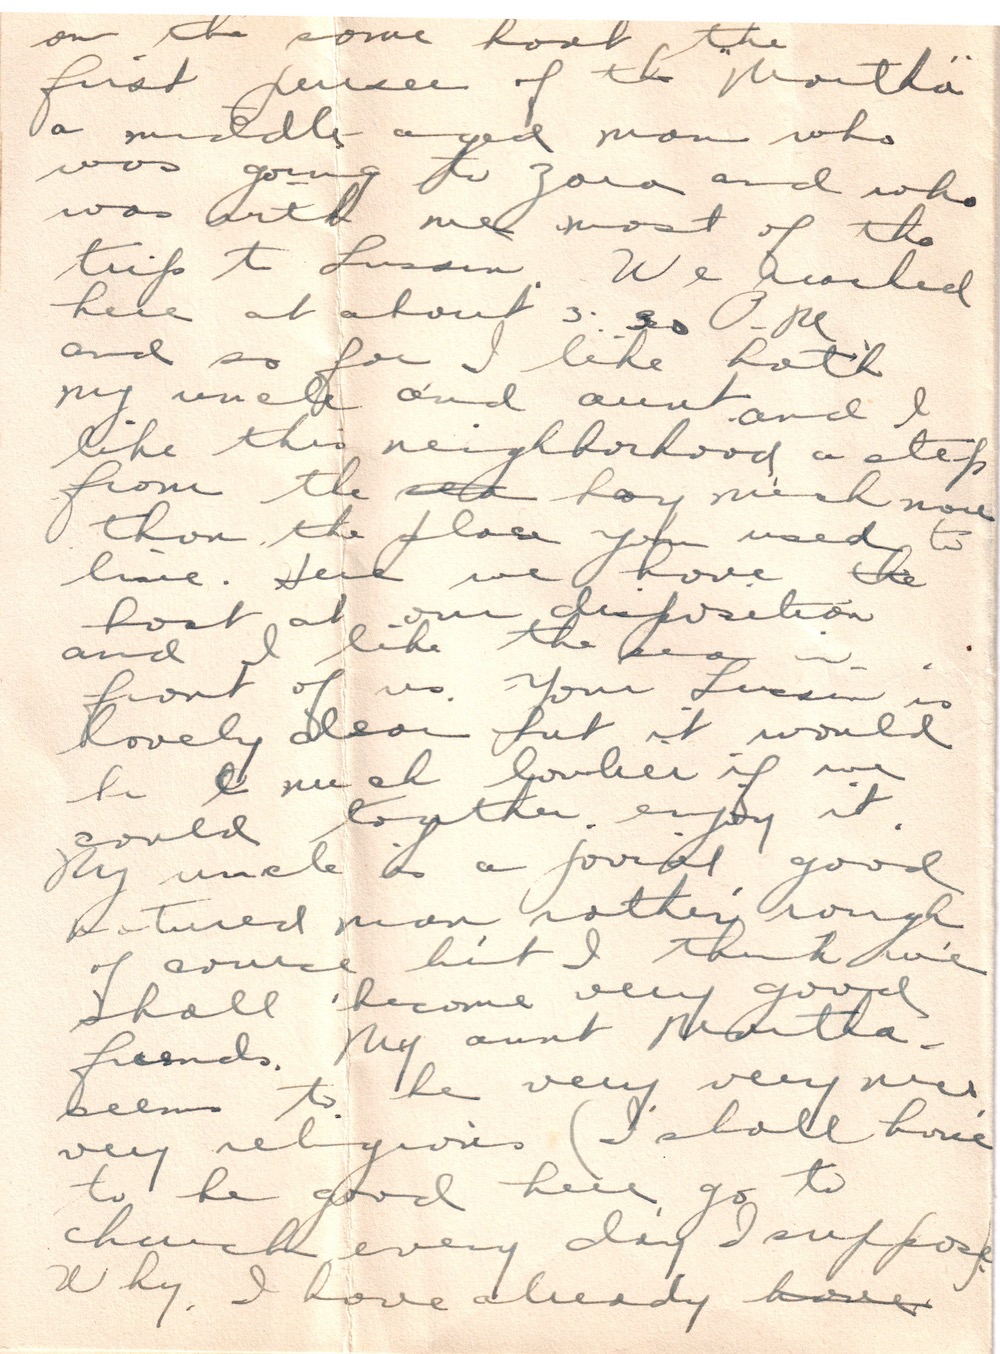 on the same boat the
first purser of the "Martha"
a middle aged man who
was going to Zara and who
was with me most of the
trip to Lussin. We reached
here at about 3.30 P.M
and so far I like both
my uncle and aunt and I
like this neighborhood a step
from the sea bay much more
than the place you used to
live. Here we have the
boat at our disposition
and I like the sea in
front of us. Your Lussin is
lovely dear but it would
be much lovlier if we
could together enjoy it.
My uncle is a jovial good
natured man rather rough
of course but I think we
shall become very good
friends. My aunt Martha
seems to be very very nice
very religious (I shall have
to be good here, go to
church every day I suppose)
Why, I have already have